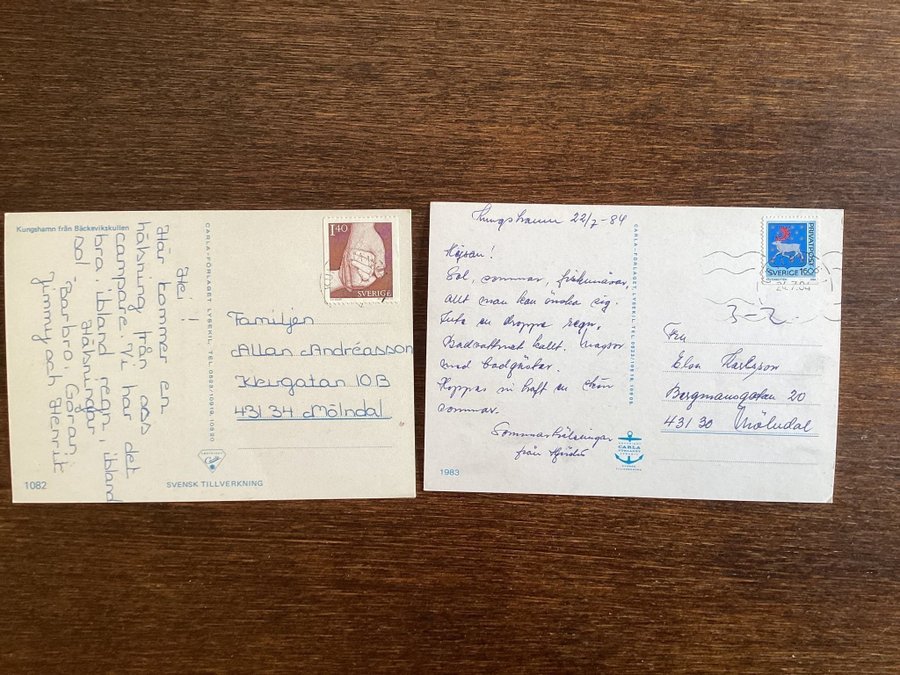 Kungshamn från Bäckevikskullen
Hej!
Här kommer en
hälsning från oss
campare. Vi har det
bra ibland regn, ibland
sol. Hälsningar
Barbro, Göran,
Jimmy och Henrik
1082
SVENSK TILLVERKNING
CARLA-FÖRLAGET LYSEKIL, TEL. 0523/10919, 10520
1.40
SVERIGE
Familjen
Allan Andréasson
431 34 Mölndal
Kungshamn 22/7-84
Hejsan!
Sol, sommar,
Allt man kan önska sig.
Inte en droppe regn,
Badvattnet kallt.
med badgäster.
Hoppas ni haft en skön
sommar.
Sommarhälsningar
från
1983
CARLA-FÖRLAGET LYSEKIL, TEL. 0523/
CARLA
PRIVATPOST
SVERIGE 160
3-2.
Elsa Karlsson
Bergmansgatan 20
431 30 Mölndal